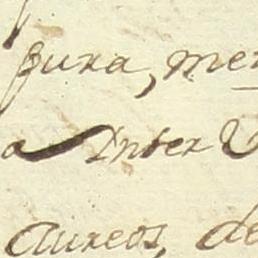 pura, mer
a Inter V
aureos, de